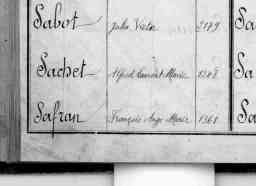 Sabot Jules Victor 3179
Sachet Alfred Laurent Marie 1203
Safran François Ange Marie 1361
Sa
Sa